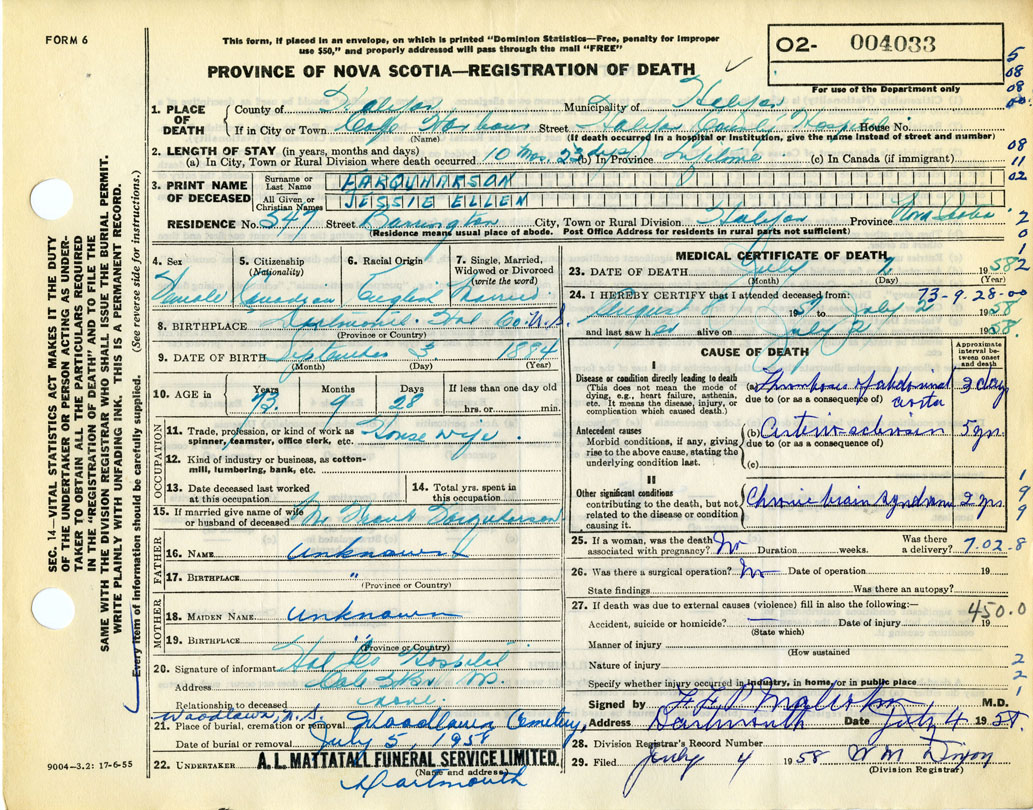 FORM 6
This form, if placed in an envelope, on which is printed "Dominion Statistics—Free, penalty for improper
use $50," and properly addressed will pass through the mail "FREE"
02- 004033
For use of the Department only
PROVINCE OF NOVA SCOTIA—REGISTRATION OF DEATH
1. PLACE OF DEATH
County of Halifax Municipality of Halifax
If in City or Town Cole Harbour Street Halifax County Hospital House No.
(Name) (If death occurred in a hospital or institution, give the name instead of street and number)
2. LENGTH OF STAY (in years, months and days)
(a) In City, Town or Rural Division where death occurred 10 mos. 23 days (b) In Province Lifetime (c) In Canada (if immigrant)
3. PRINT NAME OF DECEASED
Surname or Last Name FARQUHARSON
All Given or Christian Names JESSIE ELLEN
RESIDENCE No. 547 Street Barrington City, Town or Rural Division Halifax Province Nova Scotia
(Residence means usual place of abode. Post Office Address for residents in rural parts not sufficient)
4. Sex
Female
5. Citizenship
(Nationality)
Canadian
6. Racial Origin
English
7. Single, Married,
Widowed or Divorced
(write the word)
Married
8. BIRTHPLACE Dartmouth Hal Co. N.S.
(Province or Country)
9. DATE OF BIRTH September 3 1884
(Month) (Day) (Year)
10. AGE in
Years Months Days If less than one day old
73 9 28 hrs. or min.
OCCUPATION
11. Trade, profession, or kind of work as
spinner, teamster, office clerk, etc. House wife
12. Kind of industry or business, as cotton-
mill, lumbering, bank, etc.
13. Date deceased last worked
at this occupation
14. Total yrs. spent in
this occupation
15. If married give name of wife
or husband of deceased Mr Frank Farquharson
FATHER
16. NAME Unknown
17. BIRTHPLACE "
(Province or Country)
MOTHER
18. MAIDEN NAME Unknown
19. BIRTHPLACE "
(Province or Country)
20. Signature of informant Hal Co Hospital
Address Cole Hbr N.S.
Relationship to deceased none
Woodlawn, N.S.
21. Place of burial, cremation or removal Woodlawn Cemetery,
Date of burial or removal July 5, 1958
22. UNDERTAKER A. L. MATTATALL FUNERAL SERVICE LIMITED.
(Name and address)
Dartmouth
9004—3.2: 17-6-55
MEDICAL CERTIFICATE OF DEATH
23. DATE OF DEATH July 2 1958
(Month) (Day) (Year)
73-9-28-00
24. I HEREBY CERTIFY that I attended deceased from:
August 8 195 to July 2 1958
and last saw her alive on July 2 1958
CAUSE OF DEATH
Approximate
interval be-
tween onset
and death
I
Disease or condition directly leading to death
(This does not mean the mode of
dying, e.g., heart failure, asthenia,
etc. It means the disease, injury, or
complication which caused death.)
(a) Thrombosis of abdominal aorta 2 days
due to (or as a consequence of)
Antecedent causes
Morbid conditions, if any, giving
rise to the above cause, stating the
underlying condition last.
(b) Arteriosclerosis 5 yrs.
due to (or as a consequence of)
(c)
II
Other significant conditions
contributing to the death, but not
related to the disease or condition
causing it.
Chronic brain syndrome 2 yrs.
25. If a woman, was the death
associated with pregnancy? No Duration weeks. Was there
a delivery?
7.02-8
26. Was there a surgical operation? No Date of operation 19
State findings Was there an autopsy?
27. If death was due to external causes (violence) fill in also the following:—
450.0
Accident, suicide or homicide? — Date of injury 19
(State which)
Manner of injury
(How sustained
Nature of injury
Specify whether injury occurred in industry, in home, or in public place
Signed by M.D.
Address Dartmouth Date July 4 1958
28. Division Registrar's Record Number
29. Filed July 4 1958 W M Dixon
(Division Registrar)
5
08
08
00
08
11
02
2
0
1
2
1
9
9
2
2
1
SEC. 14—VITAL STATISTICS ACT MAKES IT THE DUTY
OF THE UNDERTAKER OR PERSON ACTING AS UNDER-
TAKER TO OBTAIN ALL THE PARTICULARS REQUIRED
IN THE "REGISTRATION OF DEATH" AND TO FILE THE
SAME WITH THE DIVISION REGISTRAR WHO SHALL ISSUE THE BURIAL PERMIT.
WRITE PLAINLY WITH UNFADING INK. THIS IS A PERMANENT RECORD.
Every item of information should be carefully supplied. (See reverse side for instructions.)